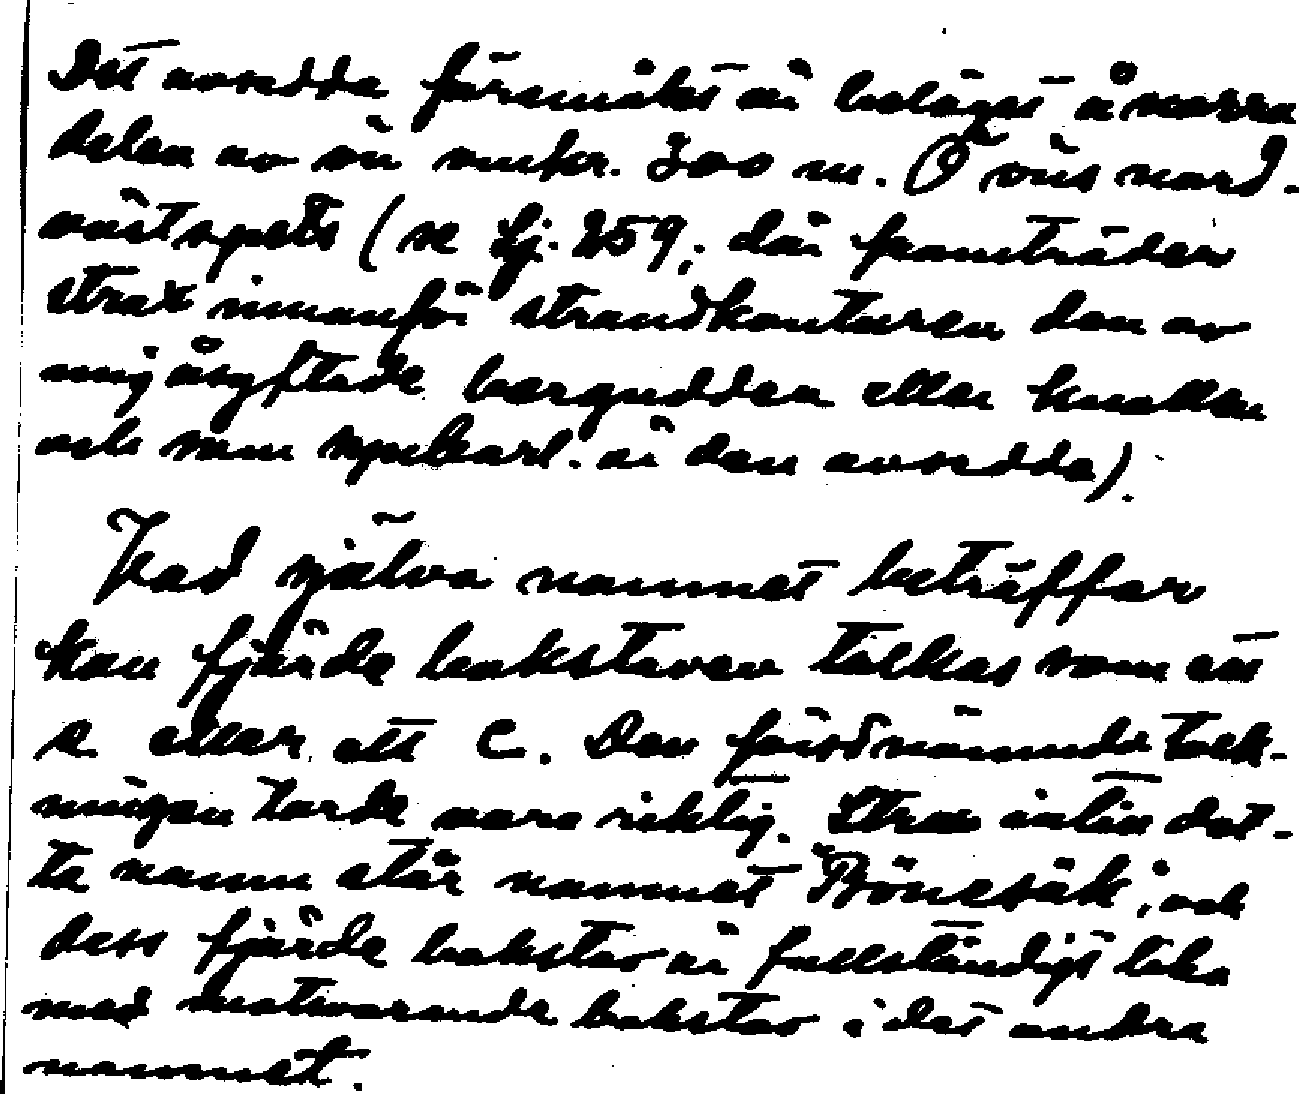 Det avsedda föremålet är beläget å norra
delen av ön omkr. 300 m. O vüs nord-
västspets (se Lj. 259, där framträder
strax innanför strandkonturen den av
mig åsyftade bergudden eller knallen
och som synbarl. är den avsedda).
Vad själva namnet beträffar
kan fjärde bokstaven tolkas som ett
e eller ett c. Den förstnämnda tolk-
ningen torde vara riktig. Strax intill det-
ta namn står namnet "Bönesäk", och
dess fjärde bokstav är fullständigt lika
med motsvarande bokstav i det andra
namnet.